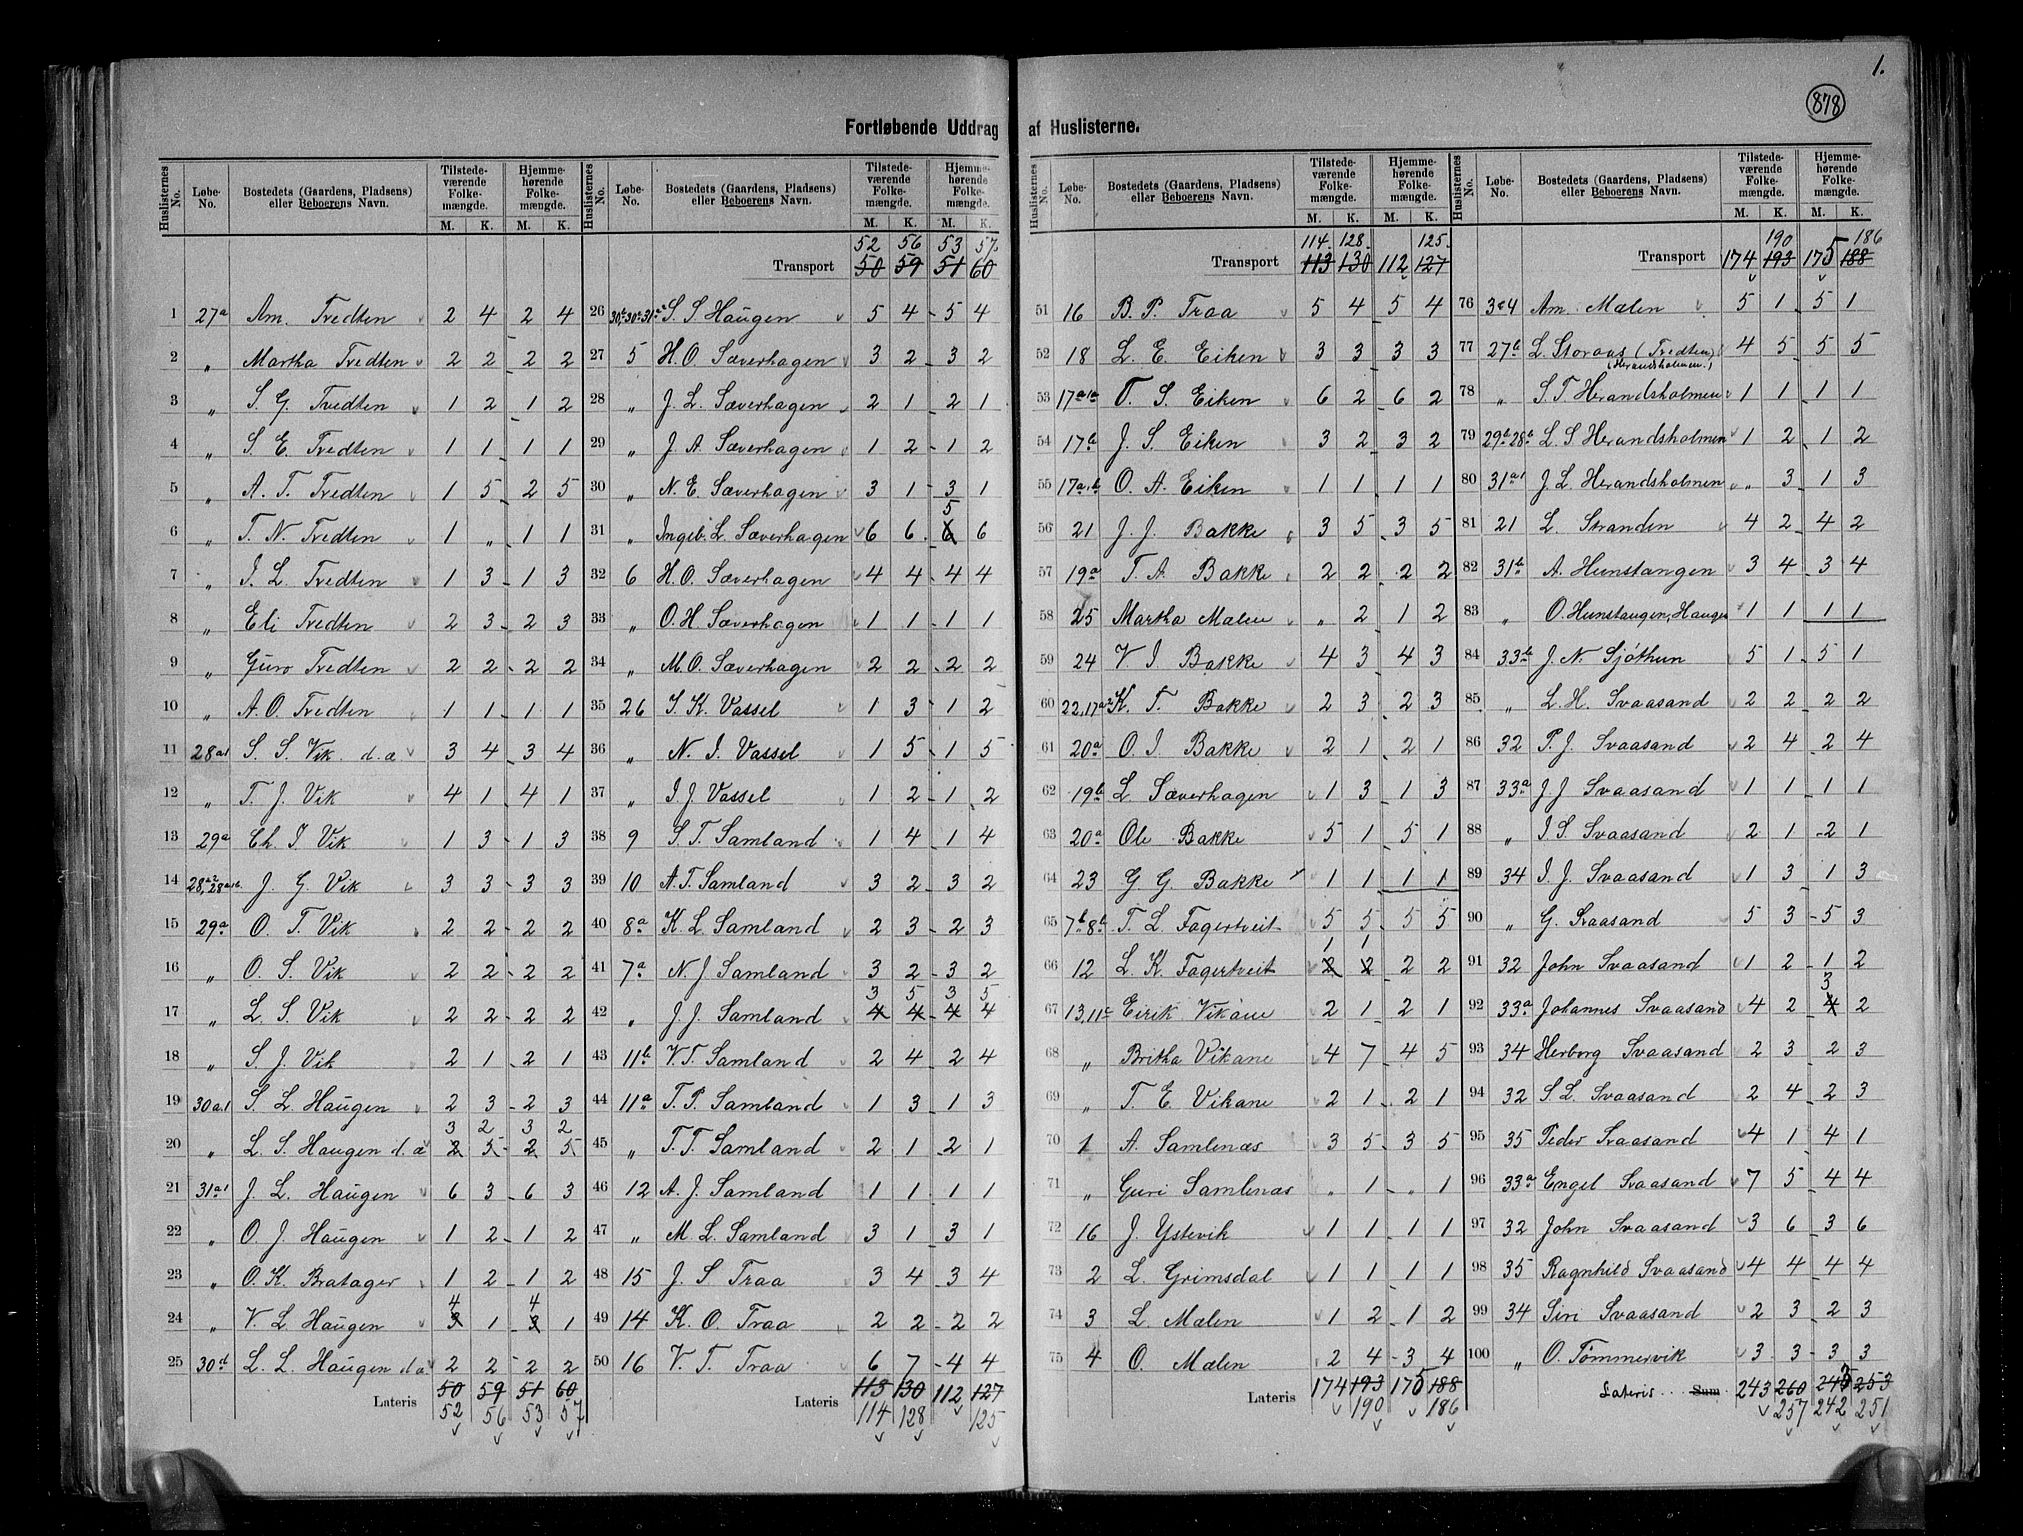 1.
878
Fortløbende Uddrag af Huslisterne.
Huslisternes No. Løbe-No. Bostedets (Gaardens, Pladsens) eller Beboerens Navn. Tilstedeværende Folkemængde. M. K. Hjemmehørende Folkemængde. M. K.
1 27a Am. Tredten 2 4 2 4
2 „ Martha Tredten 2 2 2 2
3 „ S. G. Tredten 1 2 1 2
4 „ S. E. Tredten 1 1 1 1
5 „ A. T. Tredten 1 5 2 5
6 „ T. N. Tredten 1 „ 1 1
7 „ I. L. Tredten 1 3 1 3
8 „ Eli Tredten 2 3 2 3
9 „ Guro Tredten 2 2 2 2
10 „ A. O. Tredten 1 1 1 1
11 28a1 S. S. Vik d.æ 3 4 3 4
12 „ T. J. Vik 4 1 4 1
13 29a Ch. I. Vik 1 3 1 3
14 J. G. Vik 3 3 3 3
15 29a O. T. Vik 2 2 2 2
16 „ O. S. Vik 2 2 2 2
17 „ L. S. Vik 2 2 2 2
18 „ S. J. Vik 2 1 2 1
19 30a1 S. L. Haugen 2 3 2 3
3 2 3 2
20 „ L. S. Haugen d.æ 2 5 2 5
21 31a1 J. L. Haugen 6 3 6 3
22 „ O. J. Haugen 1 2 1 2
23 „ O. K. Bratager 1 2 1 2
4 4
24 „ V. L. Haugen 3 1 3 1
25 30d L. L. Haugen d.æ 2 2 2 2
Lateris 50 59 51 60
52 56 53 57
Huslisternes No. Løbe-No. Bostedets (Gaardens, Pladsens) eller Beboerens Navn. Tilstedeværende Folkemængde. M. K. Hjemmehørende Folkemængde. M. K.
52 56 53 57
Transport 50 59 51 60
26 S. S. Haugen 5 4 5 4
27 5 H. O. Sæverhagen 3 2 3 2
28 „ J. L. Sæverhagen 2 1 2 1
29 „ J. A. Sæverhagen 1 2 1 2
30 „ N. E. Sæverhagen 3 1 3 1
5
31 „ Ingeb. L. Sæverhagen 6 6 6 6
32 6 H. O. Sæverhagen 4 4 4 4
33 „ O. H. Sæverhagen 1 1 1 1
34 „ M. O. Sæverhagen 2 2 2 2
35 26 I. K. Vassel 1 3 1 2
36 „ N. I. Vassel 1 5 1 5
37 „ I. J. Vassel 1 2 1 2
38 9 S. T. Samland 1 4 1 4
39 10 A. T. Samland 3 2 3 2
40 8a K. L. Samland 2 3 2 3
41 7a N. J. Samland 3 2 3 2
3 5 3 5
42 „ J. J. Samland 4 4 4 4
43 11b V. T. Samland 2 4 2 4
44 11a T. P. Samland 1 3 1 3
45 „ T. T. Samland 2 1 2 1
46 12 A. J. Samland 1 1 1 1
47 „ M. L. Samland 3 1 3 1
48 15 J. S. Traa 3 4 3 4
49 14 K. O. Traa 2 2 2 2
50 16 V. T. Traa 6 7 4 4
Lateris 113 130 112 127
114 128 125
Huslisternes No. Løbe-No. Bostedets (Gaardens, Pladsens) eller Beboerens Navn. Tilstedeværende Folkemængde. M. K. Hjemmehørende Folkemængde. M. K.
114. 128. 125.
Transport 113 130 112 127
51 16 B. P. Traa 5 4 5 4
52 18 L. E. Eiken 3 3 3 3
53 T. S. Eiken 6 2 6 2
54 17a J. S. Eiken 3 2 3 2
55 17a.b O. A. Eiken 1 1 1 1
56 21 J. J. Bakke 3 5 3 5
57 19a T. A. Bakke 2 2 2 2
58 25 Martha Mælen „ 2 1 2
59 24 V I Bakke 4 3 4 3
60 K. T. Bakke 2 3 2 3
61 20a O. I. Bakke 2 1 2 1
62 19b L. Sæverhagen 1 3 1 3
63 20a Ole Bakke 5 1 5 1
64 23 G G Bakke 1 1 1 1
65 7b.8b T. L. Fagertveit 5 5 5 5
1 1
66 12 L. K. Fagertveit 2 2 2 2
67 13,11c Eirik Vikane 2 1 2 1
68 „ Britha Vikane 4 7 4 5
69 „ T. E. Vikane 2 1 2 1
70 1 A. Samlenæs 3 5 3 5
71 „ Guri Samlenæs „ 1 „ 1
72 16 J. Ystevik 1 1 1 1
73 2 L. Grimsdal 1 1 1 1
74 3 L. Mælen 1 2 1 2
75 4 O. Mælen 2 4 3 4
Lateris 174 193 175 188
190 186
Huslisternes No. Løbe-No. Bostedets (Gaardens, Pladsens) eller Beboerens Navn. Tilstedeværende Folkemængde. M. K. Hjemmehørende Folkemængde. M. K.
190 186
Transport 174 193 175 188
76 3&4 Am. Mælen 5 1 5 1
77 27b L. Storaas (Tredten) 4 5 5 5
(Herandsholmen.)
78 „ S. T. Herandsholmen 1 1 1 1
79 29b 28b L. S. Herandsholmen 1 2 1 2
80 31a1 J. L. Herandsholmen „ 3 1 3
81 21 L. Stranden 4 2 4 2
82 31b A. Hunstangen 3 4 3 4
83 „ O. Hunstangen, Haugen 1 1 1 1
84 33b J. N. Sjøthun 5 1 5 1
85 „ L. H. Svaasand 2 2 2 2
86 32 P. J. Svaasand 2 4 2 4
87 33a J J Svaasand 1 1 1 1
88 „ I S. Svaasand 2 1 2 1
89 34 I. J. Svaasand 1 3 1 3
90 „ G. Svaasand 5 3 5 3
91 32 John Svaasand 1 2 1 2
3
92 33a Johannes Svaasand 4 2 4 2
93 34 Herborg Svaasand 2 3 2 3
94 32 S L. Svaasand 2 4 2 3
95 35 Peder Svaasand 4 1 4 1
96 33a Engel Svaasand 7 5 4 4
97 32 John Svaasand 3 6 3 6
98 35 Ragnhild Svaasand 4 4 4 4
99 34 Siri Svaasand 2 3 2 3
100 „ O. Tømmervik 3 3 3 3
Lateris Sum 243 260 243 253
257 242 251